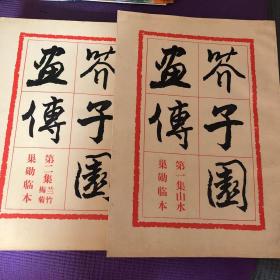 芥子園
畫傳
第一集山水
巢勋临本
芥子園
畫傳
第二集兰竹梅菊
巢勋临本